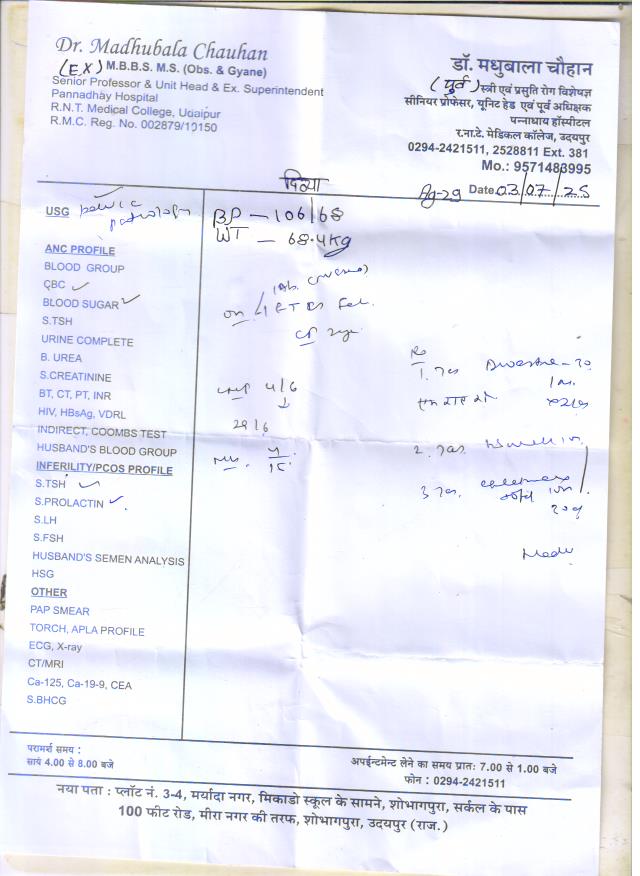 Dr. Madhubala Chauhan
(EX) M.B.B.S. M.S. (Obs. & Gyane)
Senior Professor & Unit Head & Ex. Superintendent
Pannadhay Hospital
R.N.T. Medical College, Udaipur
R.M.C. Reg. No. 002879/10150
डॉ. मधुबाला चौहान
(पुर्व) स्त्री एवं प्रसुति रोग विशेषज्ञ
सीनियर प्रोफेसर, यूनिट हेड एवं पूर्व अधिक्षक
पन्नाधाय हॉस्पीटल
र.ना.टे. मेडिकल कॉलेज, उदयपुर
0294-2421511, 2528811 Ext. 381
Mo.: 9571483995
दिव्या
Ag-29 Date 03/07/25
USG pelvic
BP - 106/68
WT - 68.4kg
ANC PROFILE
BLOOD GROUP
CBC ✓
BLOOD SUGAR ✓
S.TSH
URINE COMPLETE
B. UREA
S.CREATININE
BT, CT, PT, INR
HIV, HBsAg, VDRL
INDIRECT, COOMBS TEST
HUSBAND'S BLOOD GROUP
INFERILITY/PCOS PROFILE
S.TSH ✓
S.PROLACTIN ✓
S.LH
S.FSH
HUSBAND'S SEMEN ANALYSIS
HSG
OTHER
PAP SMEAR
TORCH, APLA PROFILE
ECG, X-ray
CT/MRI
Ca-125, Ca-19-9, CEA
S.BHCG
on
LMP 4/6
↓
Rx
1.
2.
3
परामर्श समय :
सायं 4.00 से 8.00 बजे
अपईन्टमेन्ट लेने का समय प्रातः 7.00 से 1.00 बजे
फोन : 0294-2421511
नया पता : प्लॉट नं. 3-4, मर्यादा नगर, मिकाडो स्कूल के सामने, शोभागपुरा, सर्कल के पास
100 फीट रोड, मीरा नगर की तरफ, शोभागपुरा, उदयपुर (राज.)